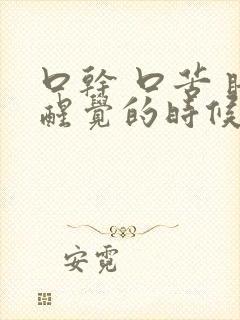 口幹 口苦
醒覺的時候
安霓